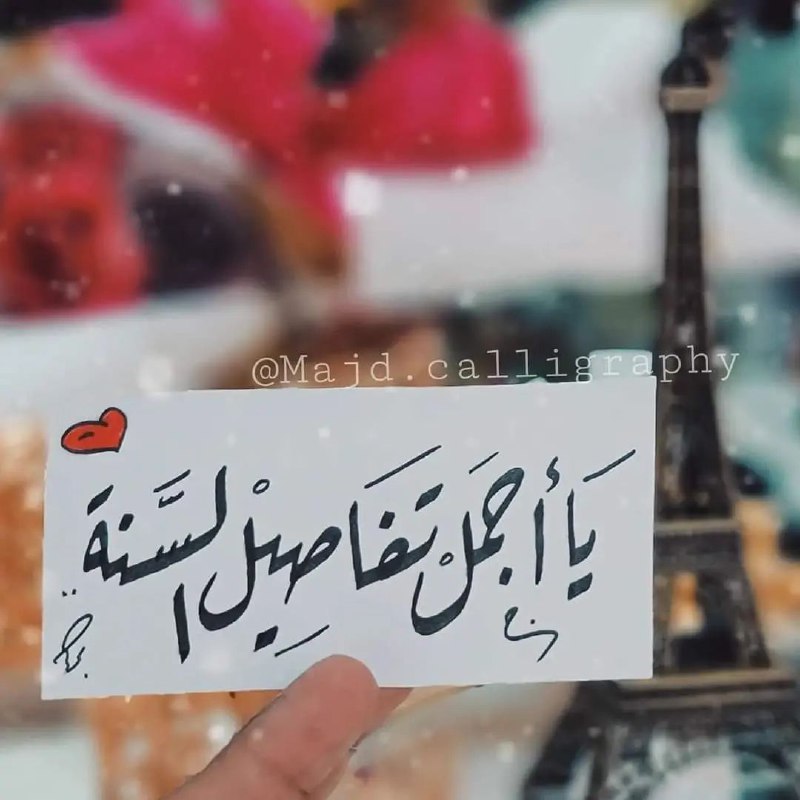 @Majd.calligraphy
يَا أجمَلْ تَفَاصِيلْ السَّنة ..